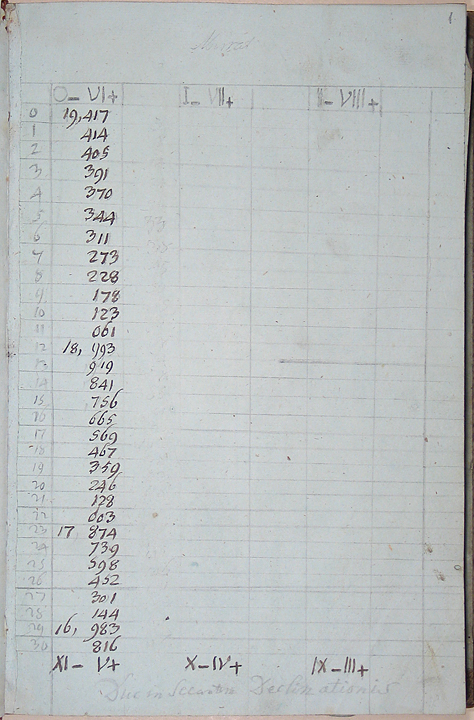 1
O- VI+ I- VII+ II- VIII+
0 19,417
1 414
2 405
3 391
4 370
5 344
6 311
7 273
8 228
9 178
10 123
11 061
12 18, 993
13 919
14 841
15 756
16 665
17 569
18 467
19 359
20 246
21 128
22 003
23 17 874
24 739
25 598
26 452
27 301
28 144
29 16, 983
30 816
XI- V+ X-IV+ IX-III+
Declinationis